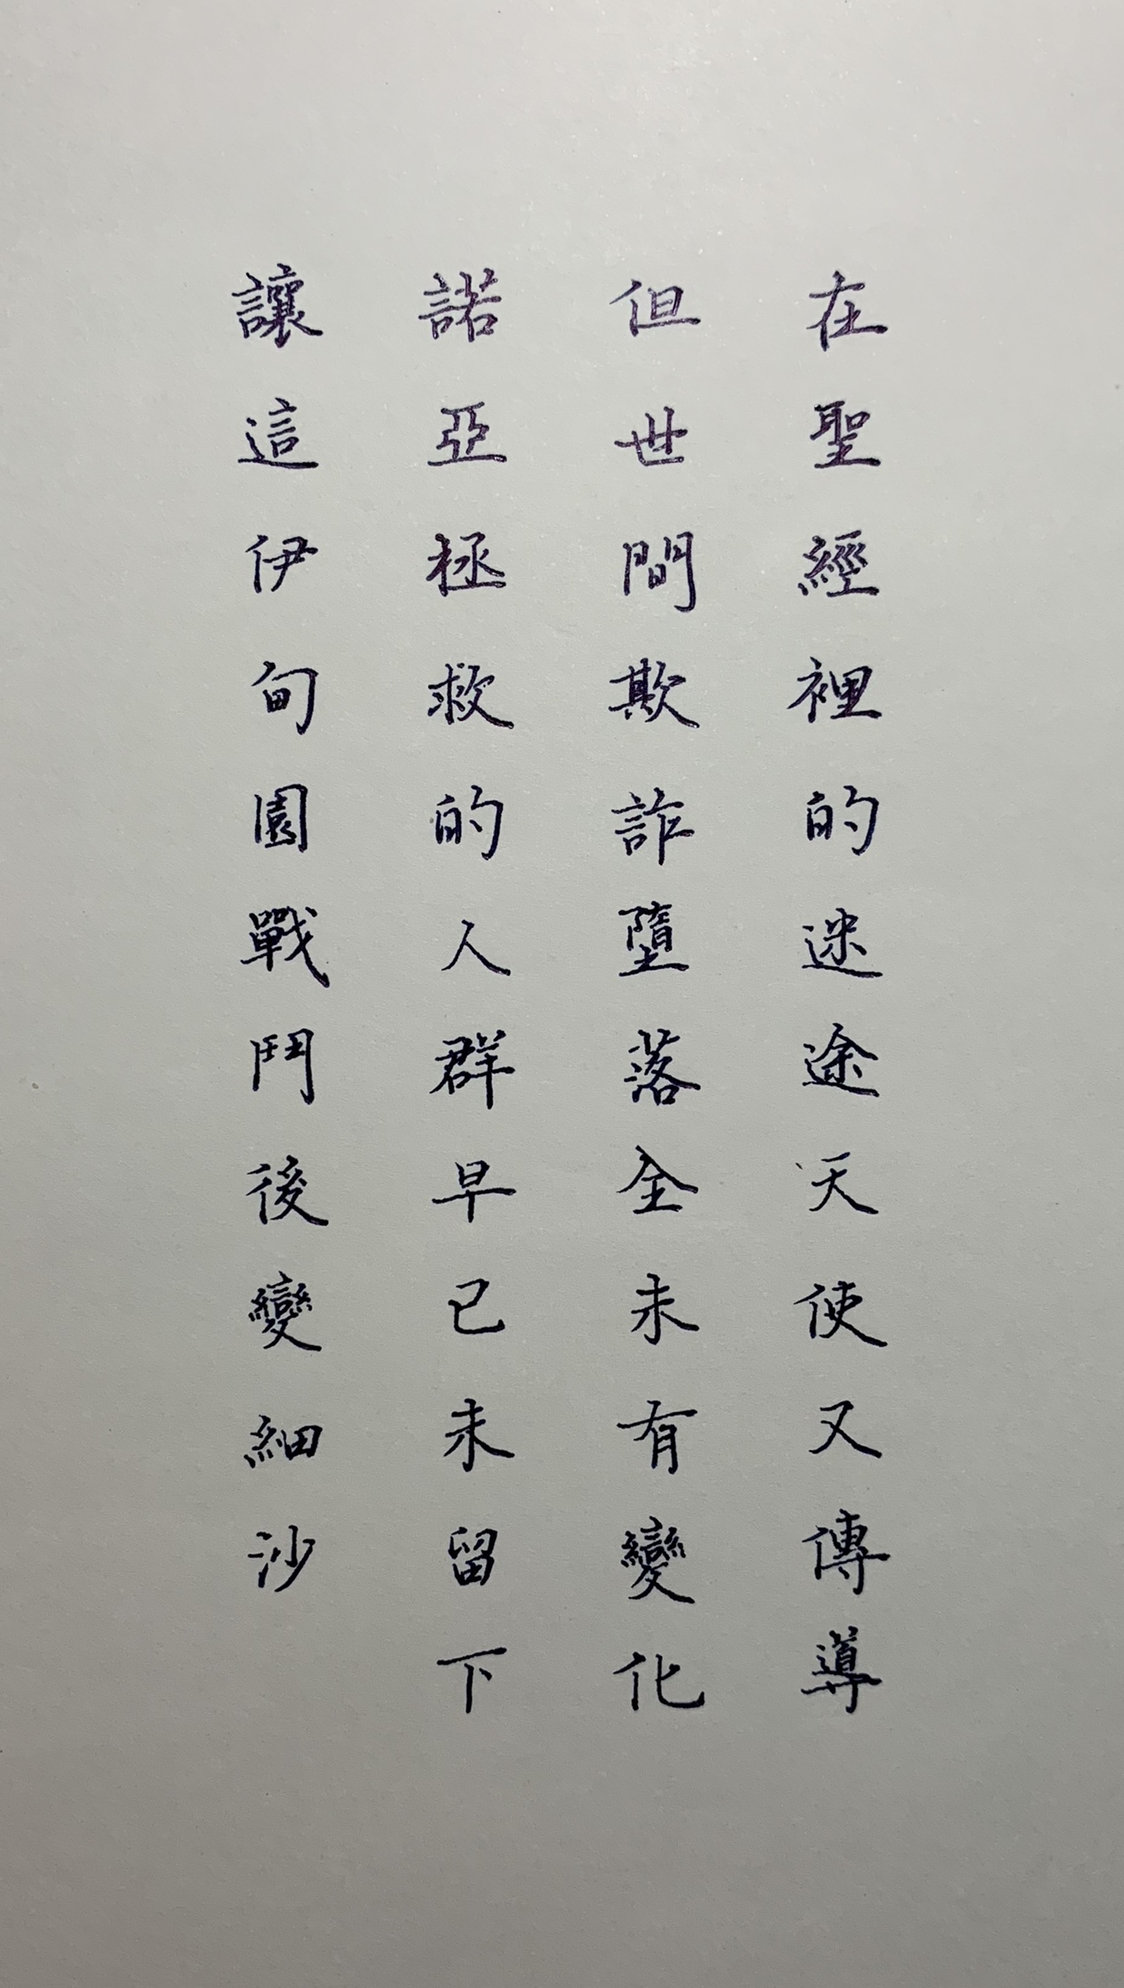 在聖經裡的迷途天使又傳導
但世間欺詐墮落全未有變化
諾亞極救的人群早已未留下
讓這伊甸園戰鬥後變細沙